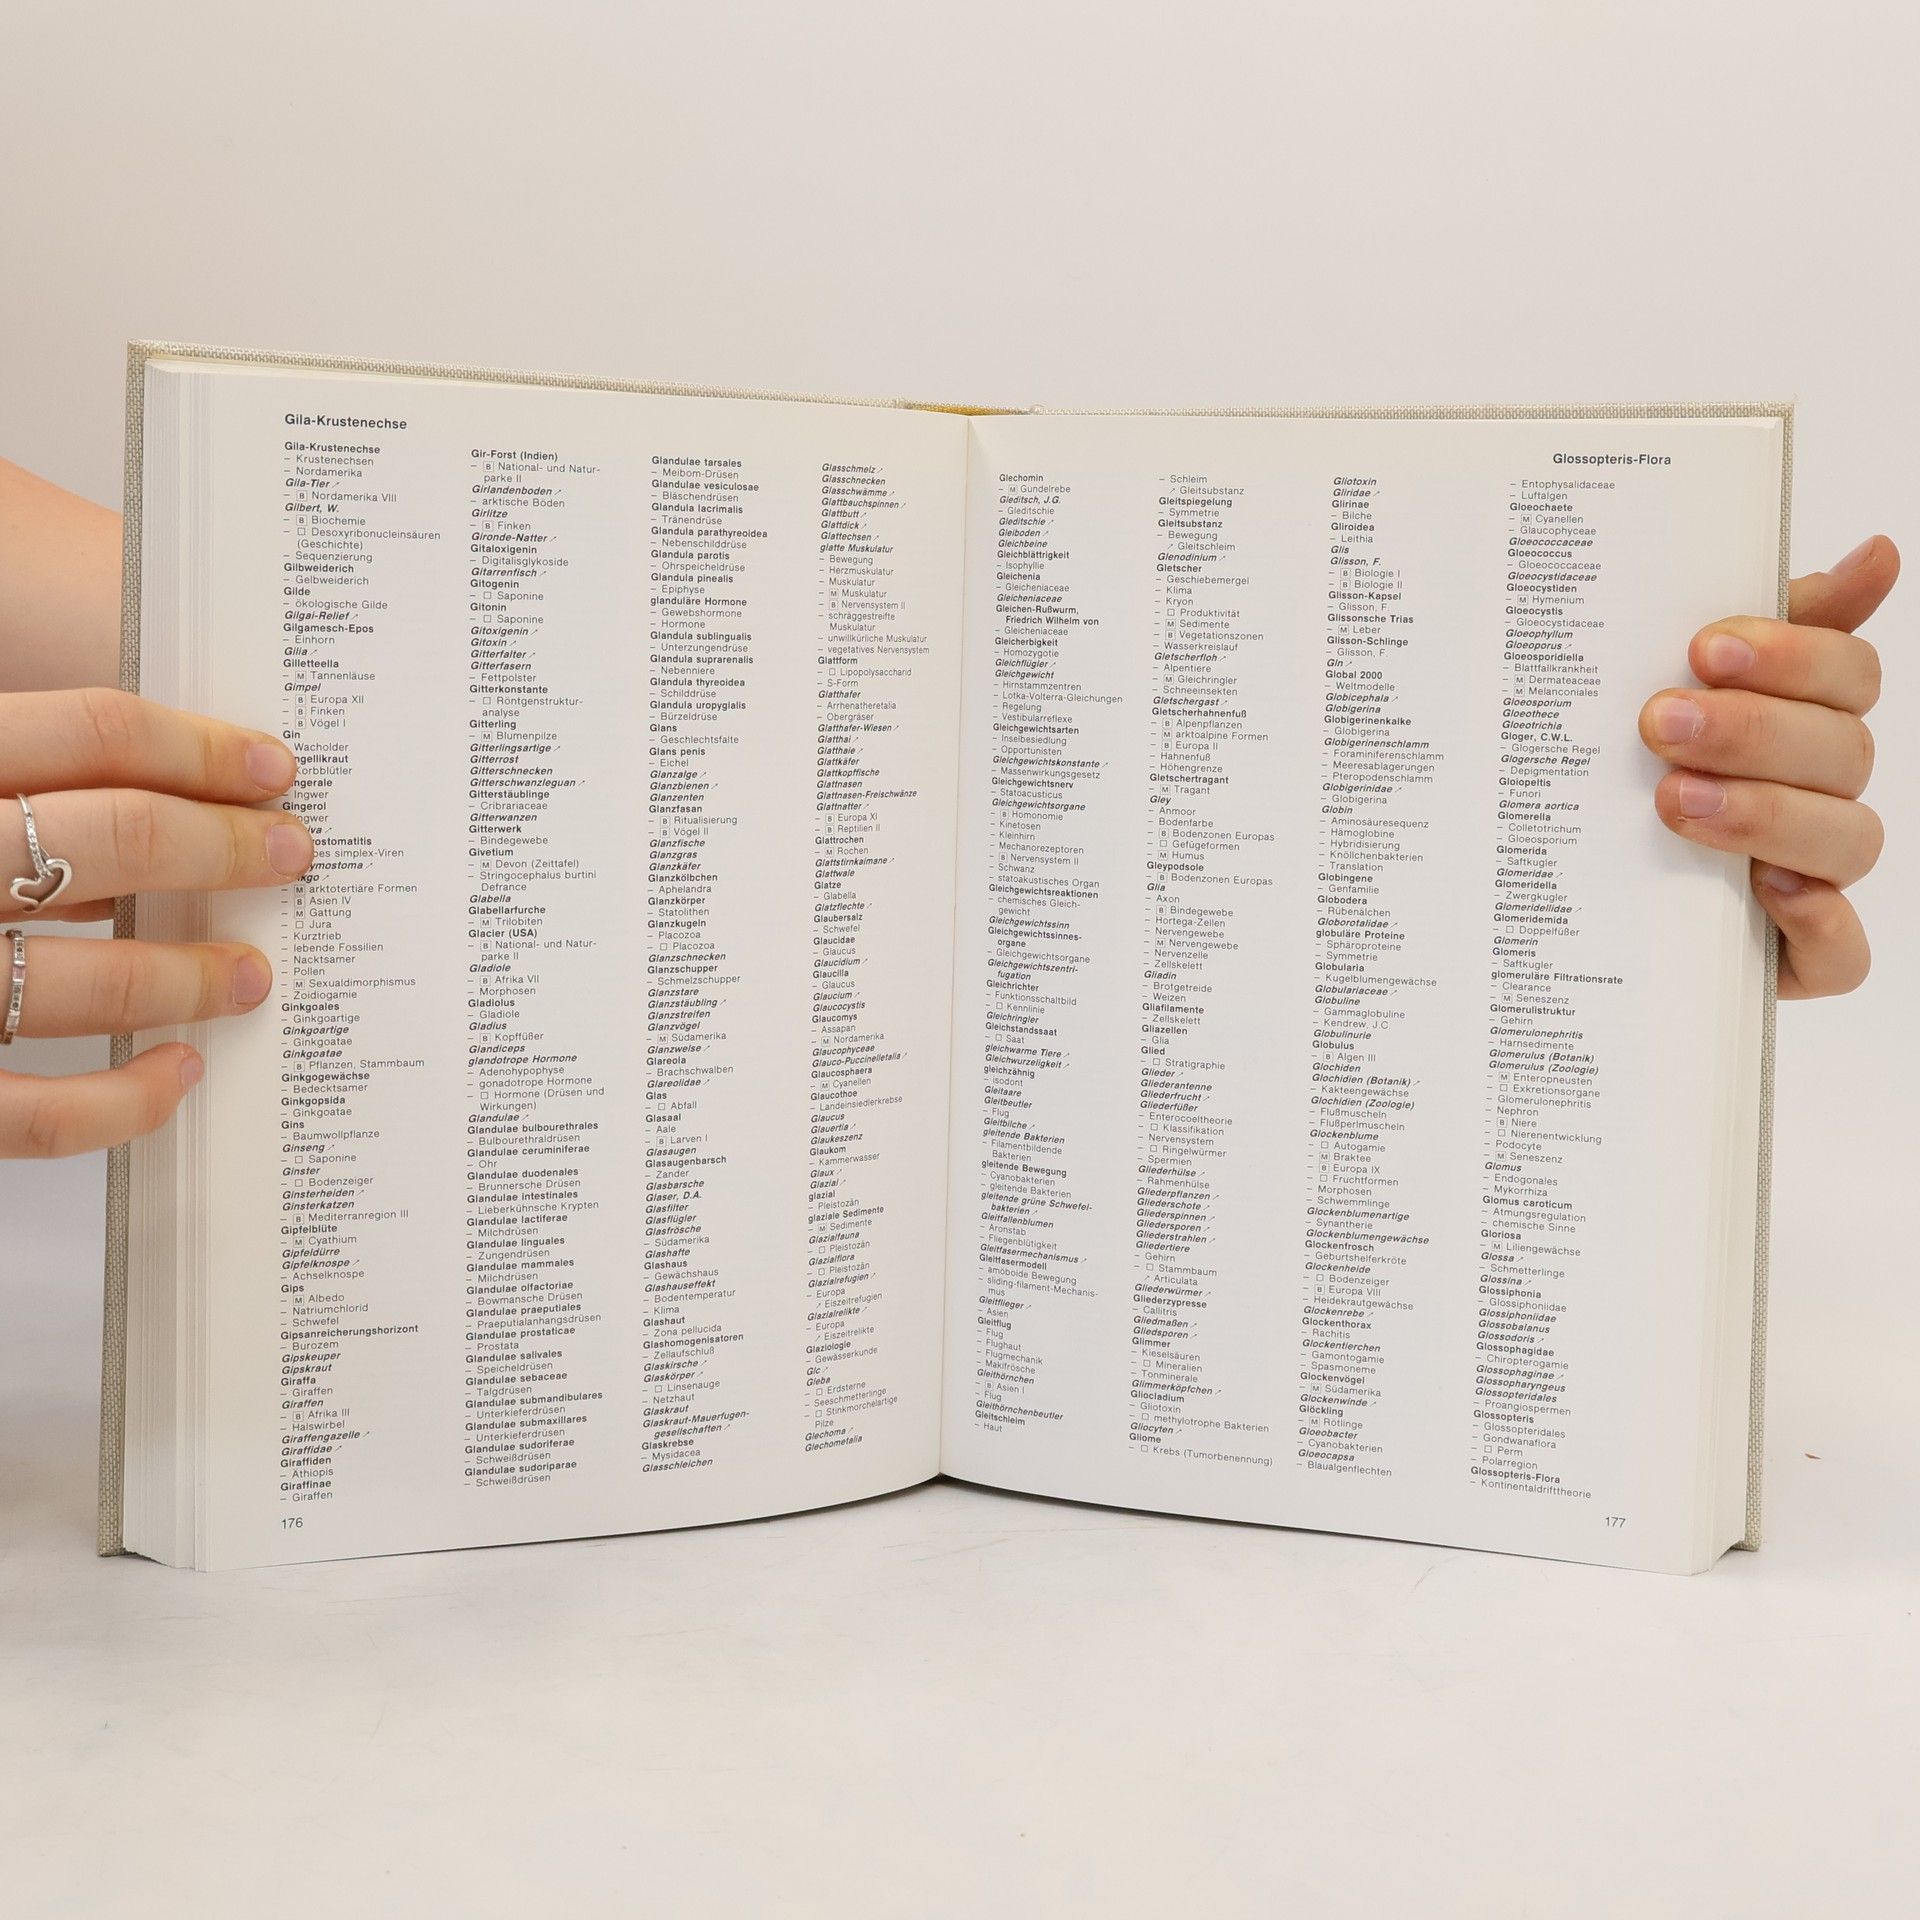 Gila-Krustenechse
Gila-Krustenechse
– Krustenechsen
– Nordamerika
Gila-Tier ↗
– B Nordamerika VIII
Gilbert, W.
– B Biochemie
– □ Desoxyribonucleinsäuren
(Geschichte)
– Sequenzierung
Gilbweiderich
– Gelbweiderich
Gilde
– ökologische Gilde
Gilgai-Relief ↗
Gilgamesch-Epos
– Einhorn
Gilia ↗
Gilletteella
– M Tannenläuse
Gimpel
– B Europa XII
– B Finken
– B Vögel I
Gin
Wacholder
ngellikraut
Korbblütler
ngerale
– Ingwer
Gingerol
ngwer
iva ↗
rostomatitis
pes simplex-Viren
ymostoma ↗
nkgo ↗
– M arktotertiäre Formen
– B Asien IV
– M Gattung
– □ Jura
– Kurztrieb
– lebende Fossilien
– Nacktsamer
– Pollen
– M Sexualdimorphismus
– Zoidiogamie
Ginkgoales
– Ginkgoartige
Ginkgoartige
– Ginkgoatae
Ginkgoatae
– B Pflanzen, Stammbaum
Ginkgogewächse
– Bedecktsamer
Ginkgopsida
– Ginkgoatae
Gins
– Baumwollpflanze
Ginseng ↗
– □ Saponine
Ginster
– □ Bodenzeiger
Ginsterheiden ↗
Ginsterkatzen
– B Mediterranregion III
Gipfelblüte
– M Cyathium
Gipfeldürre
Gipfelknospe ↗
– Achselknospe
Gips
– M Albedo
– Natriumchlorid
– Schwefel
Gipsanreicherungshorizont
– Burozem
Gipskeuper
Gipskraut
Giraffa
– Giraffen
Giraffen
– B Afrika III
– Halswirbel
Giraffengazelle ↗
Giraffidae ↗
Giraffiden
– Äthiopis
Giraffinae
– Giraffen
Gir-Forst (Indien)
– B National- und Natur-
parke II
Girlandenboden ↗
– arktische Böden
Girlitze
– B Finken
Gironde-Natter ↗
Gitaloxigenin
– Digitalisglykoside
Gitarrenfisch ↗
Gitogenin
– □ Saponine
Gitonin
– □ Saponine
Gitoxigenin ↗
Gitoxin ↗
Gitterfalter ↗
Gitterfasern
– Fettpolster
Gitterkonstante
– □ Röntgenstruktur-
analyse
Gitterling
– M Blumenpilze
Gitterlingsartige ↗
Gitterrost
Gitterschnecken
Gitterschwanzleguan ↗
Gitterstäublinge
– Cribrariaceae
Gitterwanzen
Gitterwerk
– Bindegewebe
Givetium
– M Devon (Zeittafel)
– Stringocephalus burtini
Defrance
Glabella
Glabellarfurche
– M Trilobiten
Glacier (USA)
– B National- und Natur-
parke II
Gladiole
– B Afrika VII
– Morphosen
Gladiolus
– Gladiole
Gladius
– B Kopffüßer
Glandiceps
glandotrope Hormone
– Adenohypophyse
– gonadotrope Hormone
– □ Hormone (Drüsen und
Wirkungen)
Glandulae ↗
Glandulae bulbourethrales
– Bulbourethraldrüsen
Glandulae ceruminiferae
– Ohr
Glandulae duodenales
– Brunnersche Drüsen
Glandulae intestinales
– Lieberkühnsche Krypten
Glandulae lactiferae
– Milchdrüsen
Glandulae linguales
– Zungendrüsen
Glandulae mammales
– Milchdrüsen
Glandulae olfactoriae
– Bowmansche Drüsen
Glandulae praeputiales
– Praeputialanhangsdrüsen
Glandulae prostaticae
– Prostata
Glandulae salivales
– Speicheldrüsen
Glandulae sebaceae
– Talgdrüsen
Glandulae submandibulares
– Unterkieferdrüsen
Glandulae submaxillares
– Unterkieferdrüsen
Glandulae sudoriferae
– Schweißdrüsen
Glandulae sudoriparae
– Schweißdrüsen
Glandulae tarsales
– Meibom-Drüsen
Glandulae vesiculosae
– Bläschendrüsen
Glandula lacrimalis
– Tränendrüse
Glandula parathyreoidea
– Nebenschilddrüse
Glandula parotis
– Ohrspeicheldrüse
Glandula pinealis
– Epiphyse
glanduläre Hormone
– Gewebshormone
– Hormone
Glandula sublingualis
– Unterzungendrüse
Glandula suprarenalis
– Nebenniere
Glandula thyreoidea
– Schilddrüse
Glandula uropygialis
– Bürzeldrüse
Glans
– Geschlechtsfalte
Glans penis
– Eichel
Glanzalge ↗
Glanzbienen ↗
Glanzenten
Glanzfasan
– B Ritualisierung
– B Vögel II
Glanzfische
Glanzgras
Glanzkäfer
Glanzkölbchen
– Aphelandra
Glanzkörper
– Statolithen
Glanzkugeln
– Placozoa
– □ Placozoa
Glanzschnecken
Glanzschupper
– Schmelzschupper
Glanzstare
Glanzstäubling ↗
Glanzstreifen
Glanzvögel
– M Südamerika
Glanzwelse ↗
Glareola
– Brachschwalben
Glareolidae ↗
Glas
– □ Abfall
Glasaal
– Aale
– B Larven I
Glasaugen
Glasaugenbarsch
– Zander
Glasbarsche
Glaser, D.A.
Glasfilter
Glasflügler
Glasfrösche
– Südamerika
Glashafte
Glashaus
– Gewächshaus
Glashauseffekt
– Bodentemperatur
– Klima
Glashaut
– Zona pellucida
Glashomogenisatoren
– Zellaufschluß
Glaskirsche ↗
Glaskörper ↗
– □ Linsenauge
– Netzhaut
Glaskraut
Glaskraut-Mauerfugen-
gesellschaften ↗
Glaskrebse
– Mysidacea
Glasschleichen
Glasschmelz ↗
Glasschnecken
Glasschwämme ↗
Glattbauchspinnen ↗
Glattbutt ↗
Glattdick ↗
Glattechsen ↗
glatte Muskulatur
– Bewegung
– Herzmuskulatur
– Muskulatur
– M Muskulatur
– B Nervensystem II
– schräggestreifte
Muskulatur
– unwillkürliche Muskulatur
– vegetatives Nervensystem
Glattform
– □ Lipopolysaccharid
– S-Form
Glatthafer
– Arrhenatheretalia
– Obergräser
Glatthafer-Wiesen ↗
Glatthai ↗
Glatthaie ↗
Glattkäfer
Glattkopffische
Glattnasen
Glattnasen-Freischwänze
Glattnatter ↗
– B Europa XI
– B Reptilien II
Glattrochen
– M Rochen
Glattstirnkaimane ↗
Glattwale
Glatze
– Glabella
Glatzflechte ↗
Glaubersalz
– Schwefel
Glaucidae
– Glaucus
Glaucidium ↗
Glaucilla
– Glaucus
Glaucium ↗
Glaucocystis
Glaucomys
– Assapan
– M Nordamerika
Glaucophyceae
Glauco-Puccinelletalia ↗
Glaucosphaera
– M Cyanellen
Glaucothoe
– Landeinsiedlerkrebse
Glaucus
Glauertia ↗
Glaukeszenz
Glaukom
– Kammerwasser
Glaux ↗
Glazial ↗
glazial
– Pleistozän
glaziale Sedimente
– M Sedimente
Glazialfauna
– □ Pleistozän
Glazialflora
– □ Pleistozän
Glazialrefugien ↗
– Europa
↗ Eiszeitrefugien
Glazialrelikte ↗
– Europa
↗ Eiszeitrelikte
Glaziologie
– Gewässerkunde
Glc ↗
Gleba
– □ Erdsterne
– Seeschmetterlinge
– □ Stinkmorchelartige
Pilze
Glechoma ↗
Glechometalia
176
Glossopteris-Flora
Glechomin
– M Gundelrebe
Gleditsch, J.G.
– Gleditschie
Gleditschie ↗
Gleiboden ↗
Gleichbeine
Gleichblättrigkeit
– Isophyllie
Gleichenia
– Gleicheniaceae
Gleicheniaceae
Gleichen-Rußwurm,
Friedrich Wilhelm von
– Gleicheniaceae
Gleicherbigkeit
– Homozygotie
Gleichflügler ↗
Gleichgewicht
– Hirnstammzentren
– Lotka-Volterra-Gleichungen
– Regelung
– Vestibularreflexe
Gleichgewichtsarten
– Inselbesiedlung
– Opportunisten
Gleichgewichtskonstante ↗
– Massenwirkungsgesetz
Gleichgewichtsnerv
– Statoacusticus
Gleichgewichtsorgane
– B Homonomie
– Kinetosen
– Kleinhirn
– Mechanorezeptoren
– B Nervensystem II
– Schwanz
– statoakustisches Organ
Gleichgewichtsreaktionen
– chemisches Gleich-
gewicht
Gleichgewichtssinn
Gleichgewichtssinnes-
organe
– Gleichgewichtsorgane
Gleichgewichtszentri-
fugation
Gleichrichter
– Funktionsschaltbild
– □ Kennlinie
Gleichringler
Gleichstandssaat
– □ Saat
gleichwarme Tiere ↗
Gleichwurzeligkeit ↗
gleichzähnig
– isodont
Gleitaare
Gleitbeutler
– Flug
Gleitbilche ↗
gleitende Bakterien
– Filamentbildende
Bakterien
gleitende Bewegung
– Cyanobakterien
– gleitende Bakterien
gleitende grüne Schwefel-
bakterien ↗
Gleitfallenblumen
– Aronstab
– Fliegenblütigkeit
Gleitfasermechanismus ↗
Gleitfasermodell
– amöboide Bewegung
– sliding-filament-Mechanis-
mus
Gleitflieger ↗
– Asien
Gleitflug
– Flug
– Flughaut
– Flugmechanik
– Makifrösche
Gleithörnchen
– B Asien I
– Flug
Gleithörnchenbeutler
Gleitschleim
– Haut
– Schleim
↗ Gleitsubstanz
Gleitspiegelung
– Symmetrie
Gleitsubstanz
– Bewegung
↗ Gleitschleim
Glenodinium ↗
Gletscher
– Geschiebemergel
– Klima
– Kryon
– □ Produktivität
– M Sedimente
– B Vegetationszonen
– Wasserkreislauf
Gletscherfloh ↗
– Alpentiere
– M Gleichringler
– Schneeinsekten
Gletschergast ↗
Gletscherhahnenfuß
– B Alpenpflanzen
– M arktoalpine Formen
– B Europa II
– Hahnenfuß
– Höhengrenze
Gletschertragant
– M Tragant
Gley
– Anmoor
– Bodenfarbe
– B Bodenzonen Europas
– □ Gefügeformen
– M Humus
Gleypodsole
– B Bodenzonen Europas
Glia
– Axon
– B Bindegewebe
– Hortega-Zellen
– Nervengewebe
– M Nervengewebe
– Nervenzelle
– Zellskelett
Gliadin
– Brotgetreide
– Weizen
Gliafilamente
– Zellskelett
Gliazellen
– Glia
Glied
– □ Stratigraphie
Glieder ↗
Gliederantenne
Gliederfrucht ↗
Gliederfüßer
– Enterocoeltheorie
– □ Klassifikation
– Nervensystem
– □ Ringelwürmer
– Spermien
Gliederhülse ↗
– Rahmenhülse
Gliederpflanzen ↗
Gliederschote ↗
Gliederspinnen ↗
Gliedersporen ↗
Gliederstrahlen ↗
Gliedertiere
– Gehirn
– □ Stammbaum
↗ Articulata
Gliederwürmer ↗
Gliederzypresse
– Callitris
Gliedmaßen ↗
Gliedsporen ↗
Glimmer
– Kieselsäuren
– □ Mineralien
– Tonminerale
Glimmerköpfchen ↗
Gliocladium
– Gliotoxin
– □ methylotrophe Bakterien
Gliocyten ↗
Gliome
– □ Krebs (Tumorbenennung)
Gliotoxin
Gliridae ↗
Glirinae
– Bilche
Gliroidea
– Leithia
Glis
Glisson, F.
– B Biologie I
– B Biologie II
Glisson-Kapsel
– Glisson, F.
Glissonsche Trias
– M Leber
Glisson-Schlinge
– Glisson, F.
Gln ↗
Global 2000
– Weltmodelle
Globicephala ↗
Globigerina
Globigerinenkalke
– Globigerina
Globigerinenschlamm
– Foraminiferenschlamm
– Meeresablagerungen
– Pteropodenschlamm
Globigerinidae ↗
– Globigerina
Globin
– Aminosäuresequenz
– Hämoglobine
– Hybridisierung
– Knöllchenbakterien
– Translation
Globingene
– Genfamilie
Globodera
– Rübenälchen
Globorotalidae ↗
globuläre Proteine
– Sphäroproteine
– Symmetrie
Globularia
– Kugelblumengewächse
Globulariaceae ↗
Globuline
– Gammaglobuline
– Kendrew, J.C
Globulinurie
Globulus
– B Algen III
Glochiden
Glochidien (Botanik) ↗
– Kakteengewächse
Glochidien (Zoologie)
– Flußmuscheln
– Flußperlmuscheln
Glockenblume
– □ Autogamie
– M Braktee
– B Europa IX
– □ Fruchtformen
– Morphosen
– Schwemmlinge
Glockenblumenartige
– Synantherie
Glockenblumengewächse
Glockenfrosch
– Geburtshelferkröte
Glockenheide
– □ Bodenzeiger
– B Europa VIII
– Heidekrautgewächse
Glockenrebe ↗
Glockenthorax
– Rachitis
Glockentierchen
– Gamontogamie
– Spasmoneme
Glockenvögel
– M Südamerika
Glockenwinde ↗
Glöckling
– M Rötlinge
Gloeobacter
– Cyanobakterien
Gloeocapsa
– Blaualgenflechten
– Entophysalidaceae
– Luftalgen
Gloeochaete
– M Cyanellen
– Glaucophyceae
Gloeococcaceae
Gloeococcus
– Gloeococcaceae
Gloeocystidaceae
Gloeocystiden
– M Hymenium
Gloeocystis
– Gloeocystidaceae
Gloeophyllum
Gloeoporus ↗
Gloeosporidiella
– Blattfallkrankheit
– M Dermateaceae
– M Melanconiales
Gloeosporium
Gloeothece
Gloeotrichia
Gloger, C.W.L.
– Glogersche Regel
Glogersche Regel
– Depigmentation
Gloiopeltis
– Funori
Glomera aortica
Glomerella
– Colletotrichum
– Gloeosporium
Glomerida
– Saftkugler
Glomeridae ↗
Glomeridella
– Zwergkugler
Glomeridellidae ↗
Glomeridemida
– □ Doppelfüßer
Glomerin
Glomeris
– Saftkugler
glomeruläre Filtrationsrate
– Clearance
– M Seneszenz
Glomerulistruktur
– Gehirn
Glomerulonephritis
– Harnsedimente
Glomerulus (Botanik)
Glomerulus (Zoologie)
– M Enteropneusten
– □ Exkretionsorgane
– Glomerulonephritis
– Nephron
– B Niere
– □ Nierenentwicklung
– Podocyte
– M Seneszenz
Glomus
– Endogonales
– Mykorrhiza
Glomus caroticum
– Atmungsregulation
– chemische Sinne
Gloriosa
– M Liliengewächse
Glossa ↗
– Schmetterlinge
Glossina ↗
Glossiphonia
– Glossiphoniidae
Glossiphoniidae
Glossobalanus
Glossodoris ↗
Glossophagidae
– Chiropterogamie
Glossophaginae ↗
Glossopharyngeus
Glossopteridales
– Proangiospermen
Glossopteris
– Glossopteridales
– Gondwanaflora
– □ Perm
– Polarregion
Glossopteris-Flora
– Kontinentaldrifttheorie
177